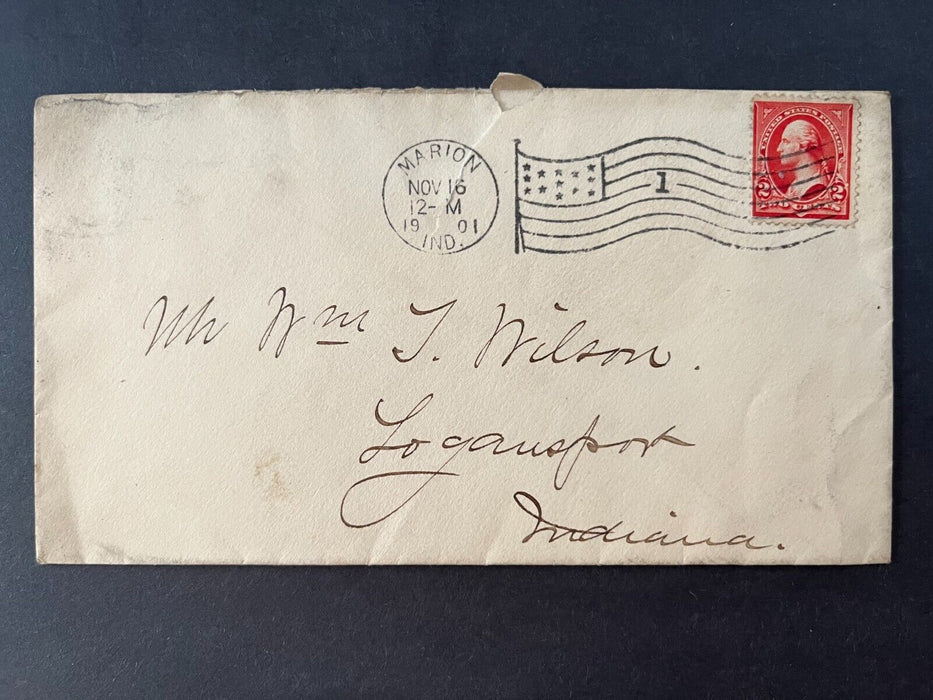 MARION
NOV 16
12- M
19 01
IND.
1
UNITED STATES POSTAGE
2 2
Mr Wm T. Wilson.
Logansport
Indiana.